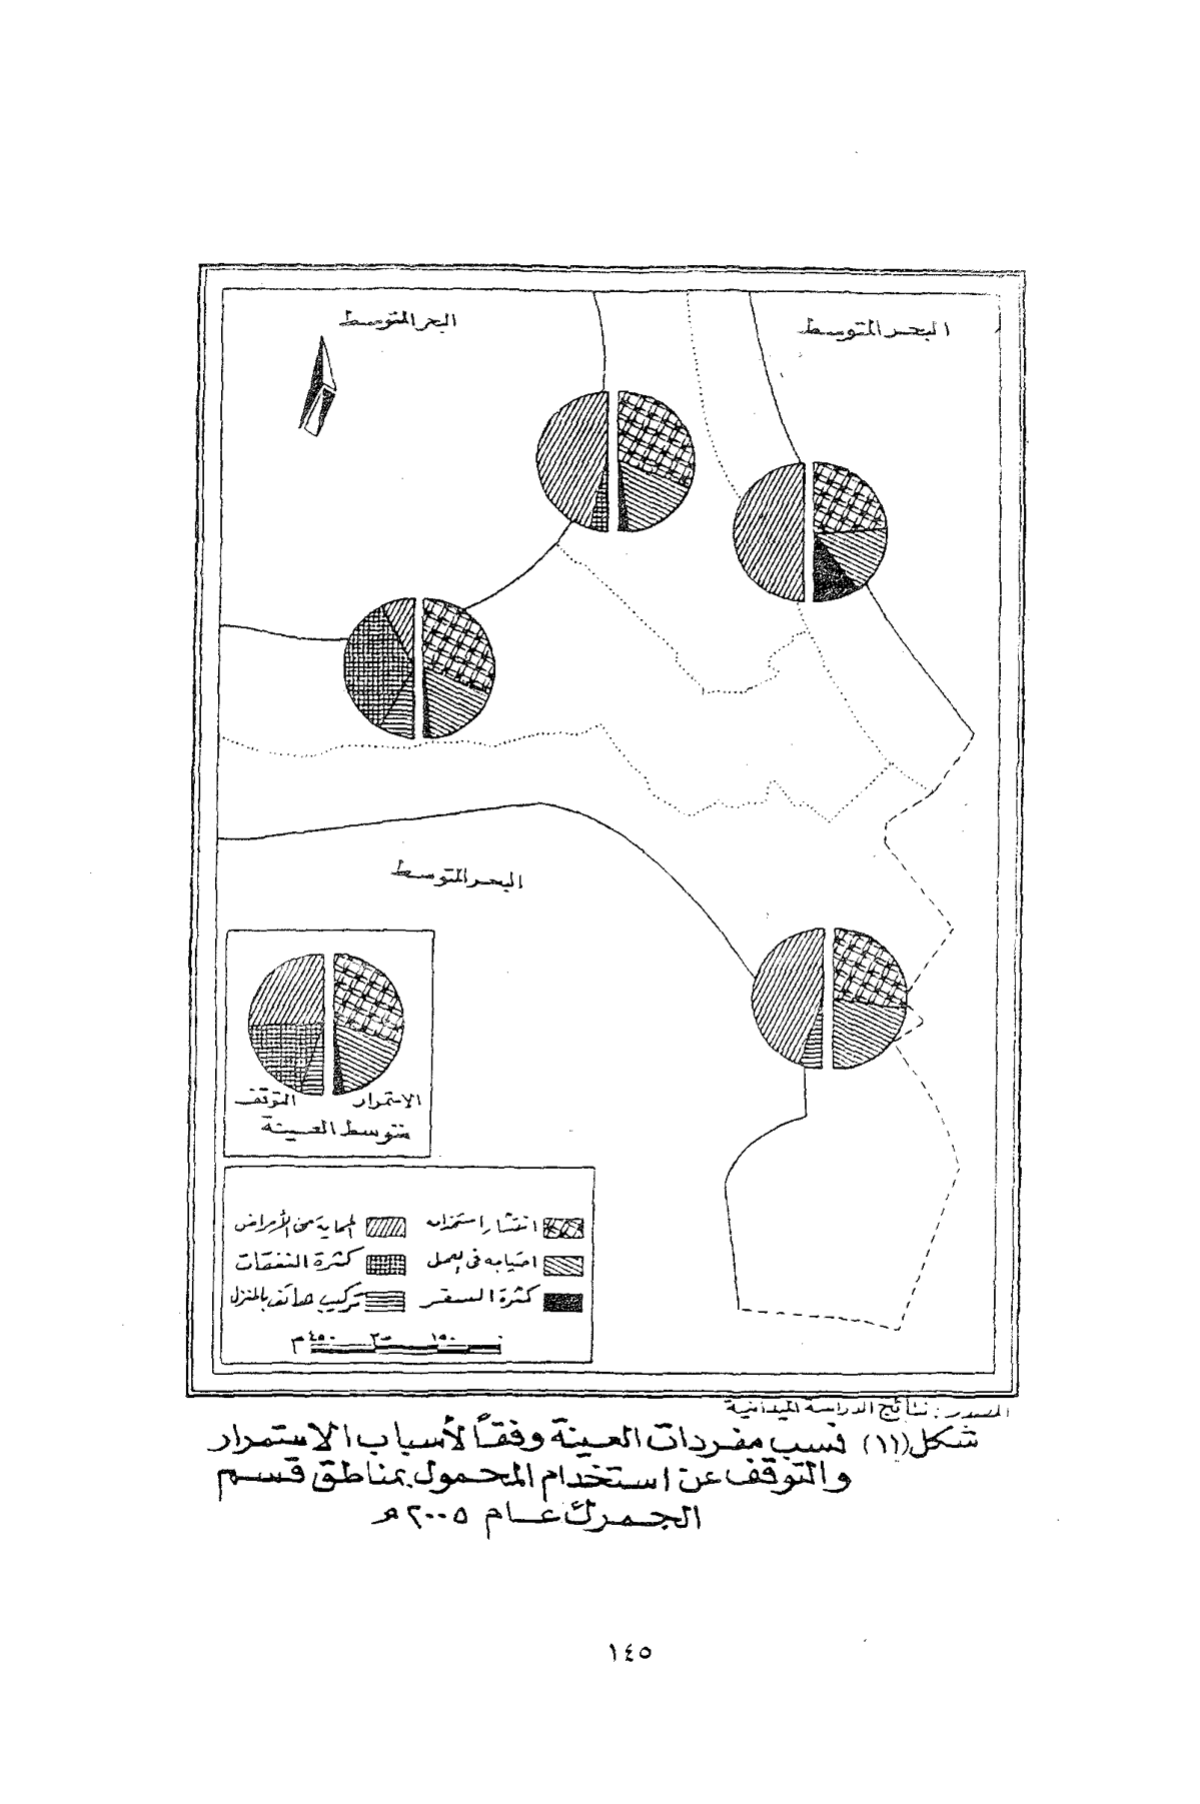 البحر المتوسط
البحر المتوسط
البحر المتوسط
الاستمرار
التوقف
متوسط العينة
انتشار استخدامه
الحماية من الأمراض
احتياجه في العمل
كثرة النفقات
كثرة السفر
تركيب هاتف بالمنزل
٠ ١٥٠ ٣٠٠ ٤٥٠ م
المصدر: نتائج الدراسة الميدانية
شكل (١١) نسب مفردات العينة وفقاً لأسباب الاستمرار
والتوقف عن استخدام المحمول بمناطق قسم
الجمرك عام ٢٠٠٥م
١٤٥